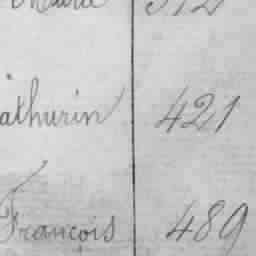 athurin 421
François 489